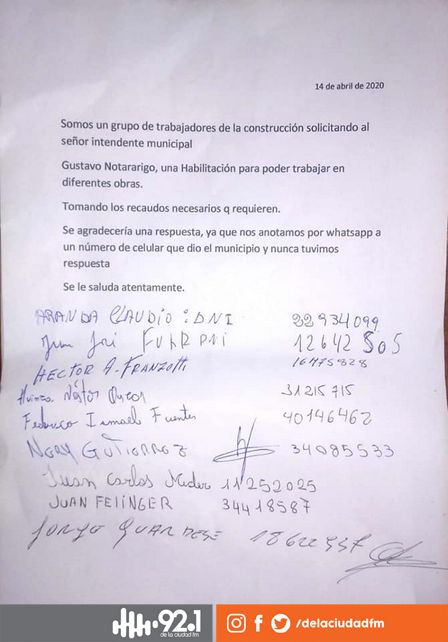 14 de abril de 2020
Somos un grupo de trabajadores de la construcción solicitando al
señor intendente municipal
Gustavo Notararigo, una Habilitación para poder trabajar en
diferentes obras.
Tomando los recaudos necesarios q requieren.
Se agradecería una respuesta, ya que nos anotamos por whatsapp a
un número de celular que dio el municipio y nunca tuvimos
respuesta
Se le saluda atentamente.
ARANDA CLAUDIO :DNI 22934099
Juan José 12642505
HECTOR A. FRANZOTTI 16475828
Néstor 31215715
Federico Ismael Fuentes 40146462
NERY GUTIERREZ 34085533
Juan Carlos 11252025
JUAN FELINGER 34418587
JORGE
92.1
de la ciudad fm
/delaciudadfm